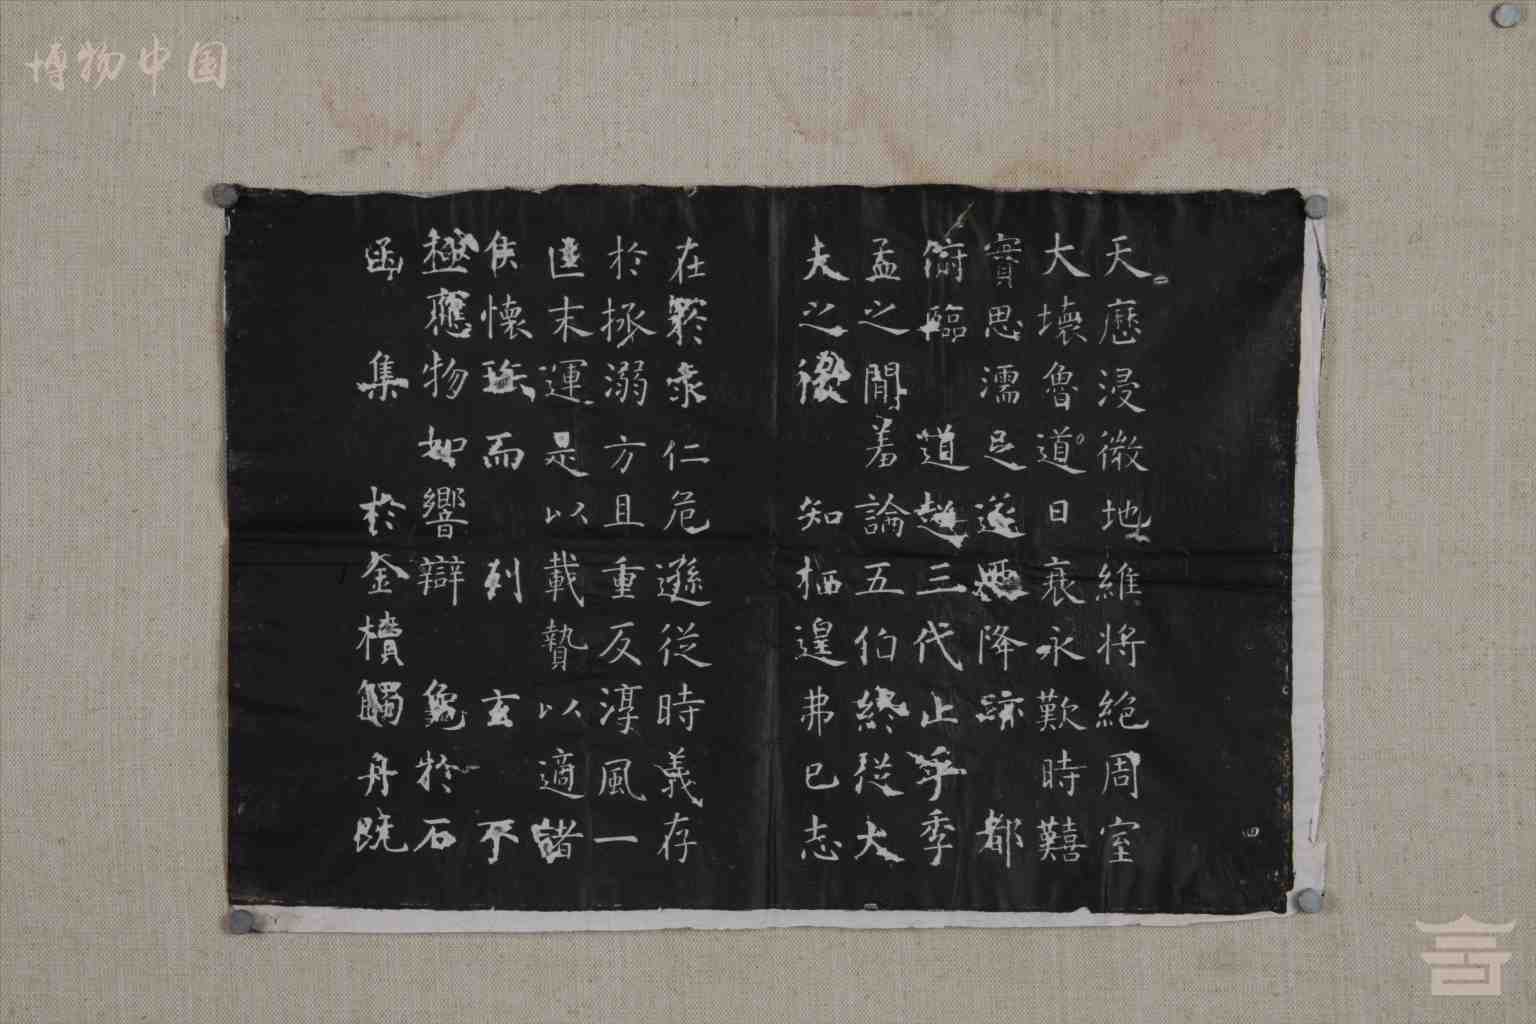 博物中国
天曆浸微地維將絕周室
大壞魯道日衰永歎時囏
實思濡足遂迺降跡 都
俯臨 道超三代止乎季
孟之閒羞論五伯終從大
夫之後 知栖遑弗已志
在於求仁危遜從時義存
於拯溺方且重反淳風一
匡末運是以載贄以適諸
侯懷珍而 列 玄 不
極應物如響辯 龜於石
函 集 於金櫝觸舟既
四